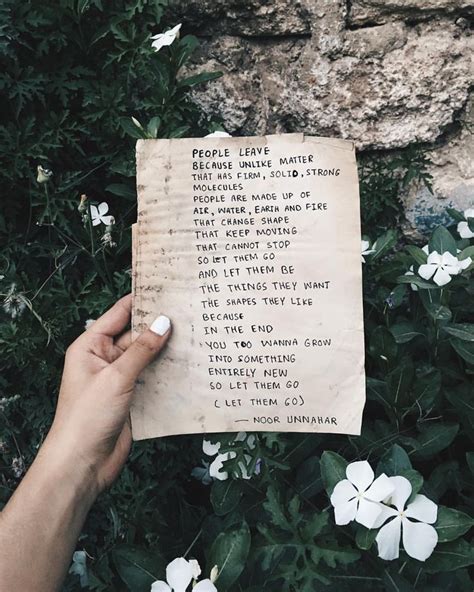 PEOPLE LEAVE
BECAUSE UNLIKE MATTER
THAT HAS FIRM, SOLID, STRONG
MOLECULES
PEOPLE ARE MADE UP OF
AIR, WATER, EARTH AND FIRE
THAT CHANGE SHAPE
THAT KEEP MOVING
THAT CANNOT STOP
SO LET THEM GO
AND LET THEM BE
THE THINGS THEY WANT
THE SHAPES THEY LIKE
BECAUSE
IN THE END
YOU TOO WANNA GROW
INTO SOMETHING
ENTIRELY NEW
SO LET THEM GO
( LET THEM GO )
— NOOR UNNAHAR